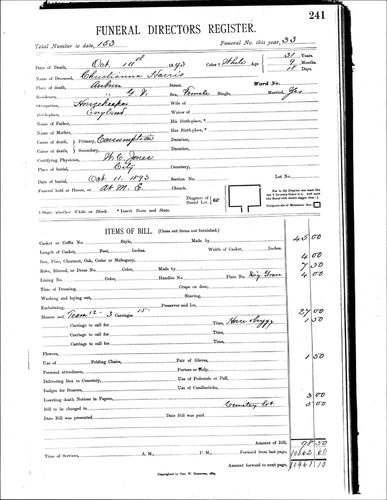 241
FUNERAL DIRECTORS REGISTER.
Total Number to date, 153 Funeral No. this year, 33
Date of Death, Oct. 1893 Color White Age 31 Years.
9 Months.
18 Days.
Name of Deceased, Christianna Harris
Place of death, Auburn Street. Ward No.
Residence, Sex, Female Single, Married, Yes
Occupation, Housekeeper Wife of
Birthplace, England Widow of
Name of Father, His Birthplace,*
Name of Mother, Her Birthplace,*
Cause of death, Primary, Consumption Duration,
Cause of death, Secondary, Duration,
Certifying Physician, W. C. Jones
Place of burial, City Cemetery,
Date of burial, Oct. 11. 1893 Section No. Lot No.
Funeral held at House, or At M. E. Church.
Diagram of Burial Lot,
† State whether White or Black. * Insert Town and State.
ITEMS OF BILL. (Cross out items not furnished.)
Casket or Coffin No. Style, Made by 45 00
Length of Casket, Feet, Inches. Width of Casket, Inches.
Box, Pine, Chestnut, Oak, Cedar or Mahogany, 4 00
Robe, Shroud, or Dress No. Color, Made by 7 50
Lining No. Color, Handles No. Plate No. 4 00
Time of Dressing, Crape on door,
Washing and laying out, Shaving,
Embalming, Preserver and Ice,
Hearse and Team 12 - 3 Carriages 15- 27 00
Carriage to call for Time, 1 50
Carriage to call for Time,
Carriage to call for Time,
Flowers,
Use of Folding Chairs, Pair of Gloves, 1 50
Personal attendance, Porters or Help,
Delivering Box to Cemetery, Use of Pedestals or Pall,
Badges for Bearers, Use of Candlesticks,
Inserting death Notices in Papers, 3 00
Bill to be charged to Cemetery lot 5 00
Date Bill was presented Date Bill was paid
Amount of Bill, 98 50
Time of Services, A. M., P. M., Forward from last page, 10362 60
Amount forward to next page, 10461 10